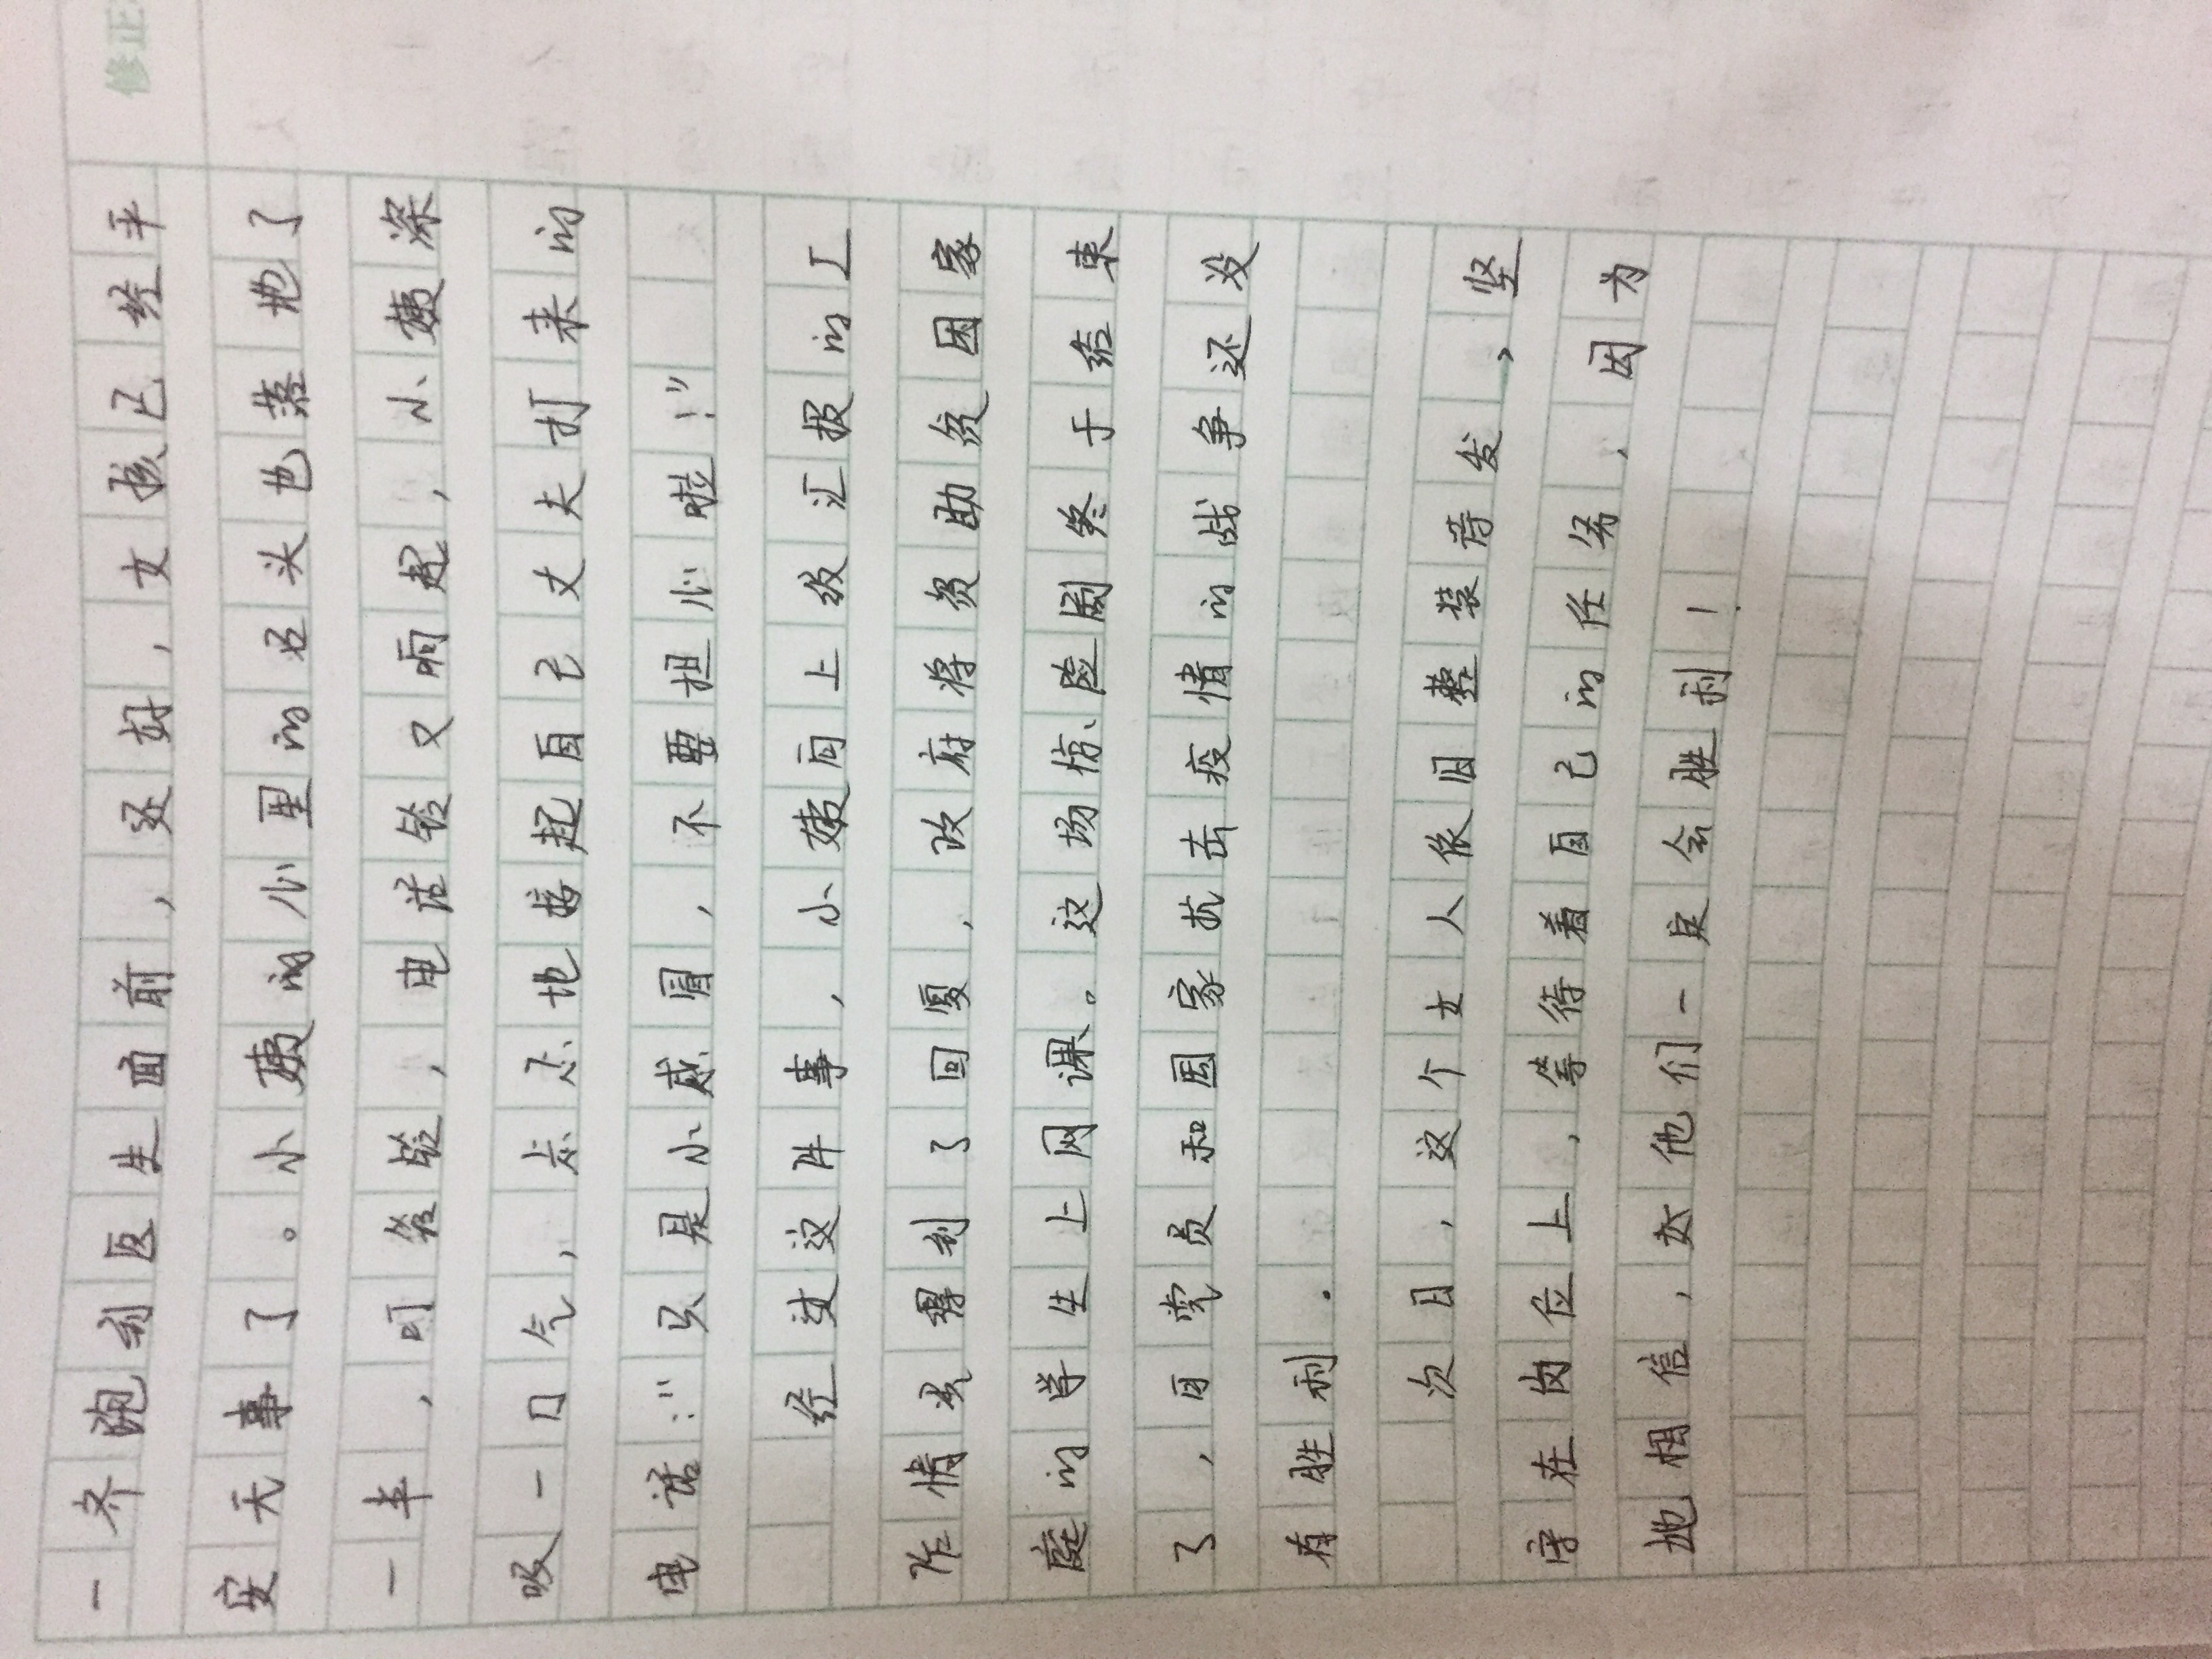 修正
一齐跑到医生面前，还好，女孩已经平
安无事了。小姨的心里的石头也落地了
一半，叮铃铃，电话铃又响起，小姨深
吸一口气，忐忑地接起自己丈夫打来的
电话：“只是小感冒，不要担心啦！”
经过这件事，小姨向上级汇报的工
作情况得到了回复，政府将资助贫困家
庭的学生上网课。这场惊险剧终于结束
了，可党员和国家抗击疫情的战争还没
有胜利.
次日，这个女人依旧整装待发，坚
守在岗位上，等待着自己的任务，因为
她相信，他们一定会胜利！